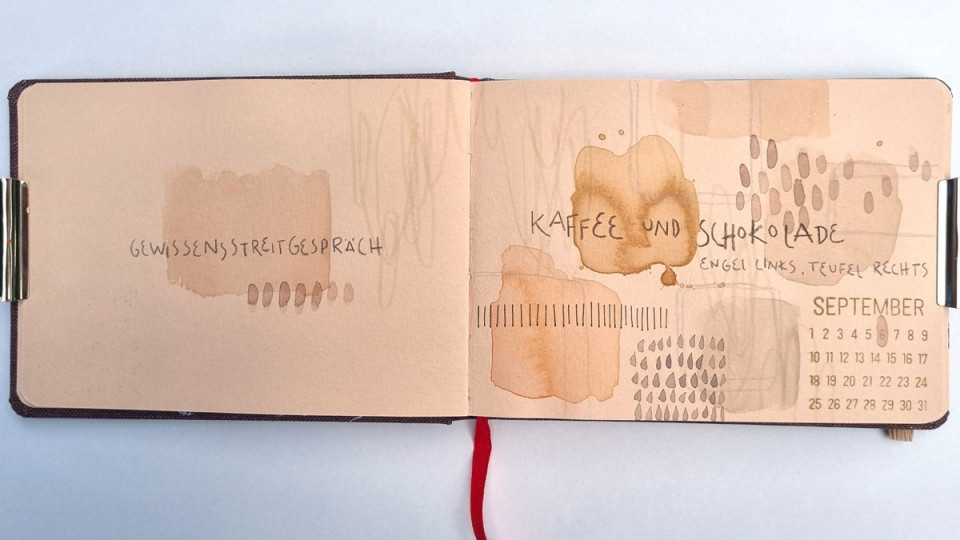 GEWISSENSSTREITGESPRÄCH
KAFFEE UND SCHOKOLADE
ENGEL LINKS, TEUFEL RECHTS
SEPTEMBER
1 2 3 4 5 6 7 8 9
10 11 12 13 14 15 16 17
18 19 20 21 22 23 24
25 26 27 28 29 30 31